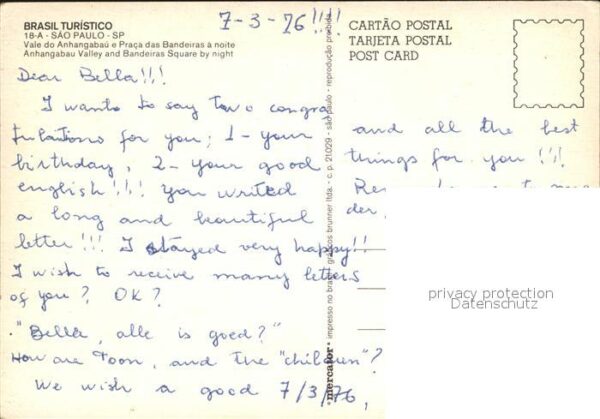 BRASIL TURÍSTICO
18-A - SÃO PAULO - SP
Vale do Anhangabaú e Praça das Bandeiras à noite
Anhangabau Valley and Bandeiras Square by night
7-3-76!!!!
CARTÃO POSTAL
TARJETA POSTAL
POST CARD
Dear Bella!!!
I want to say two congra
tulations for you; 1- your
birthday, 2- your good
english!!! you writed
a long and beautiful
letter!!! I stayed very happy!!
I wish to receive many letters
of you? OK?
"Bella, alle is goed?"
How are Toon, and the "children"?
We wish a good 7/3/76,
and all the best
things for you!!!
der,
mercator
impresso no brasil
gráficos brunner ltda. - c. p. 21.029 - são paulo - reprodução proibida
privacy protection
Datenschutz